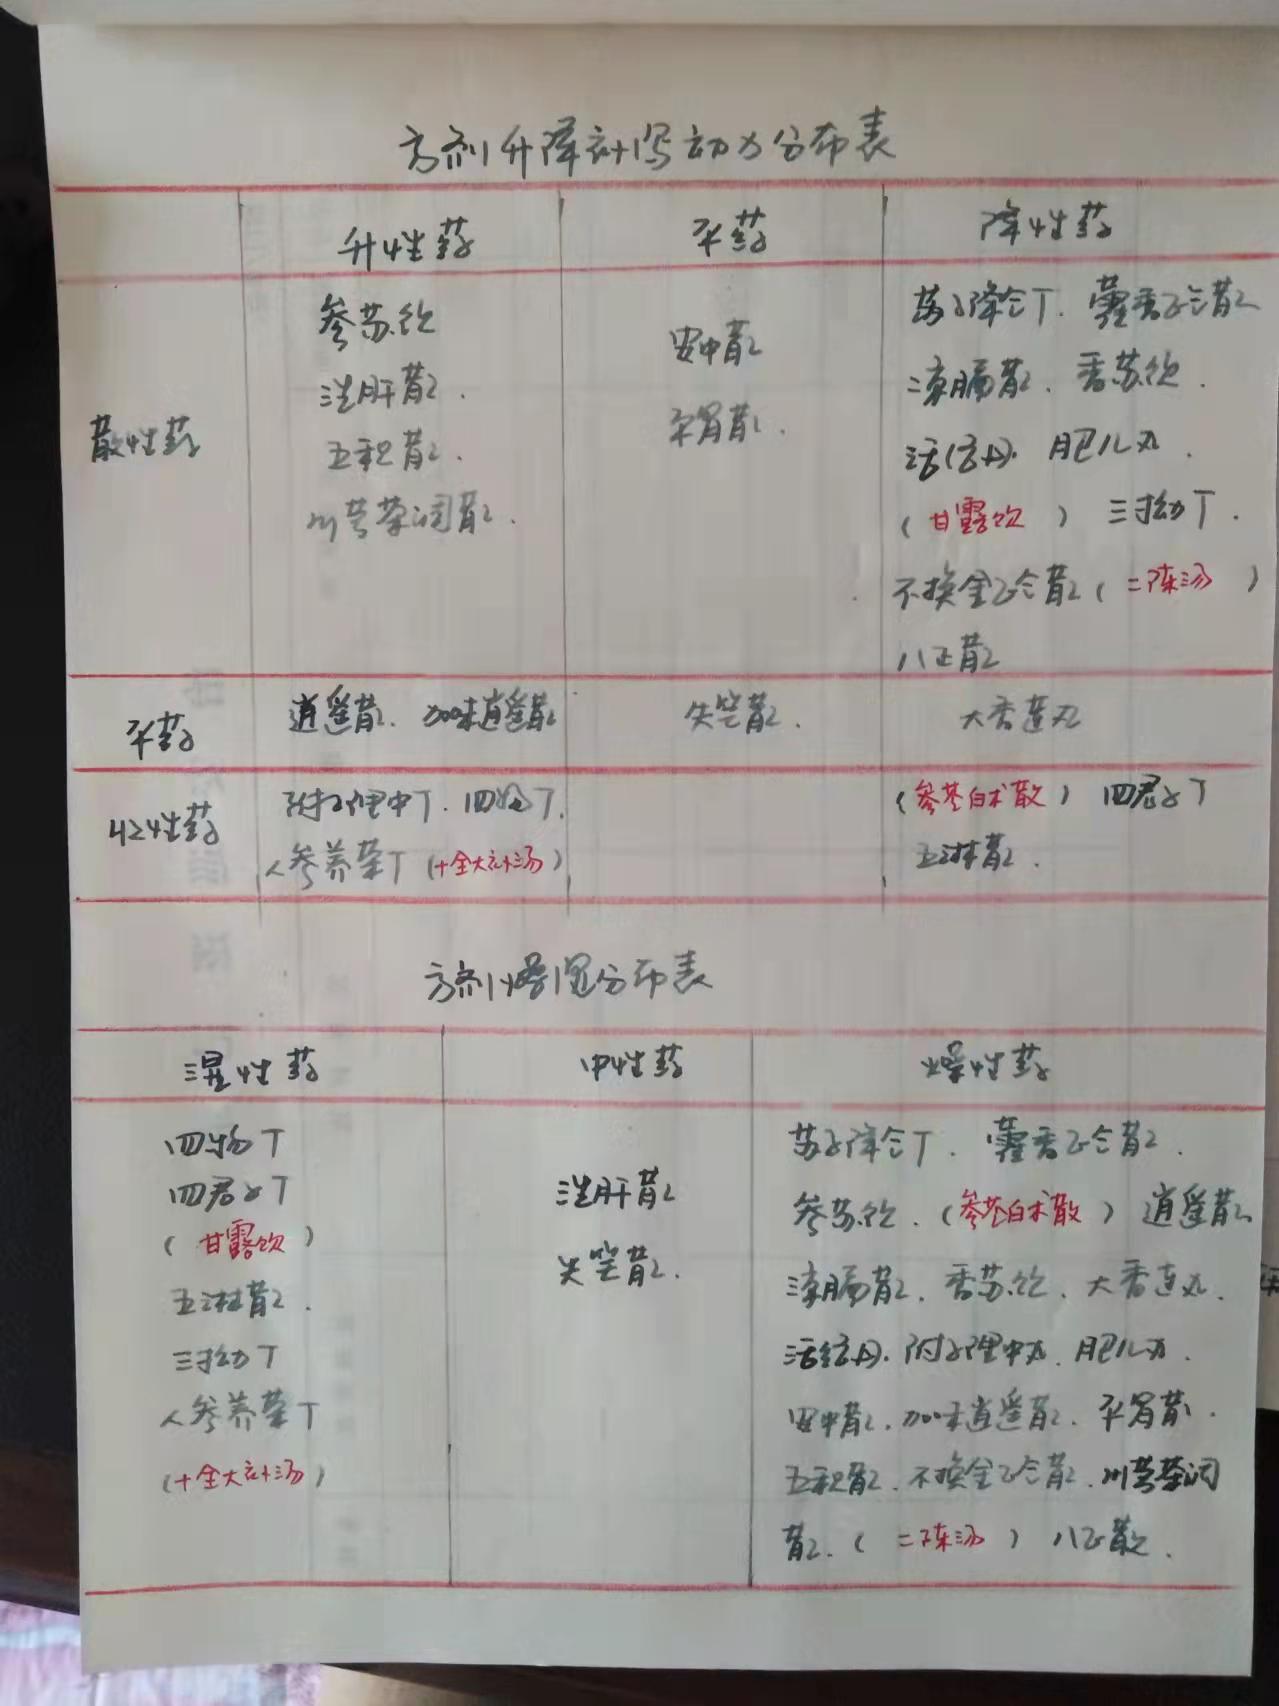 方剂升降补泻动力分布表
升性药 平药 降性药
散性药
参苏饮
洗肝散.
五积散.
川芎茶调散.
安中散
平胃散.
苏子降气T. 藿香正气散
凉膈散. 香苏饮.
活络丹. 肥儿丸.
(甘露饮) 三拗T.
不换金正气散(二陈汤)
八正散
平药
逍遥散. 加味逍遥散
失笑散.
大香连丸
收性药
附子理中T. 四物T.
人参养荣T(十全大补汤)
(参苓白术散) 四君子T
五淋散.
方剂燥湿分布表
湿性药 中性药 燥性药
四物T
四君子T
(甘露饮)
五淋散.
三拗T
人参养荣T
(十全大补汤)
洗肝散
失笑散.
苏子降气T. 藿香正气散.
参苏饮.(参苓白术散) 逍遥散
凉膈散. 香苏饮. 大香连丸.
活络丹. 附子理中丸. 肥儿丸.
安中散. 加味逍遥散. 平胃散.
五积散. 不换金正气散. 川芎茶调
散.(二陈汤) 八正散.